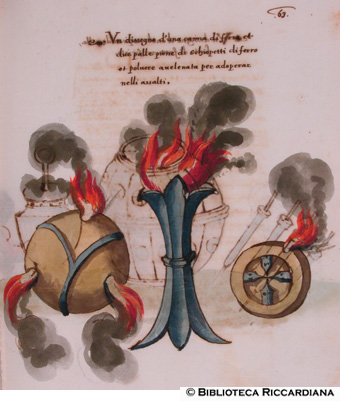 63.
Vn disegno d'una canna di ferro et
due palle piene di schiopetti di ferro
et poluere auelenata per adoperar
nelli assalti.
© BIBLIOTECA RICCARDIANA